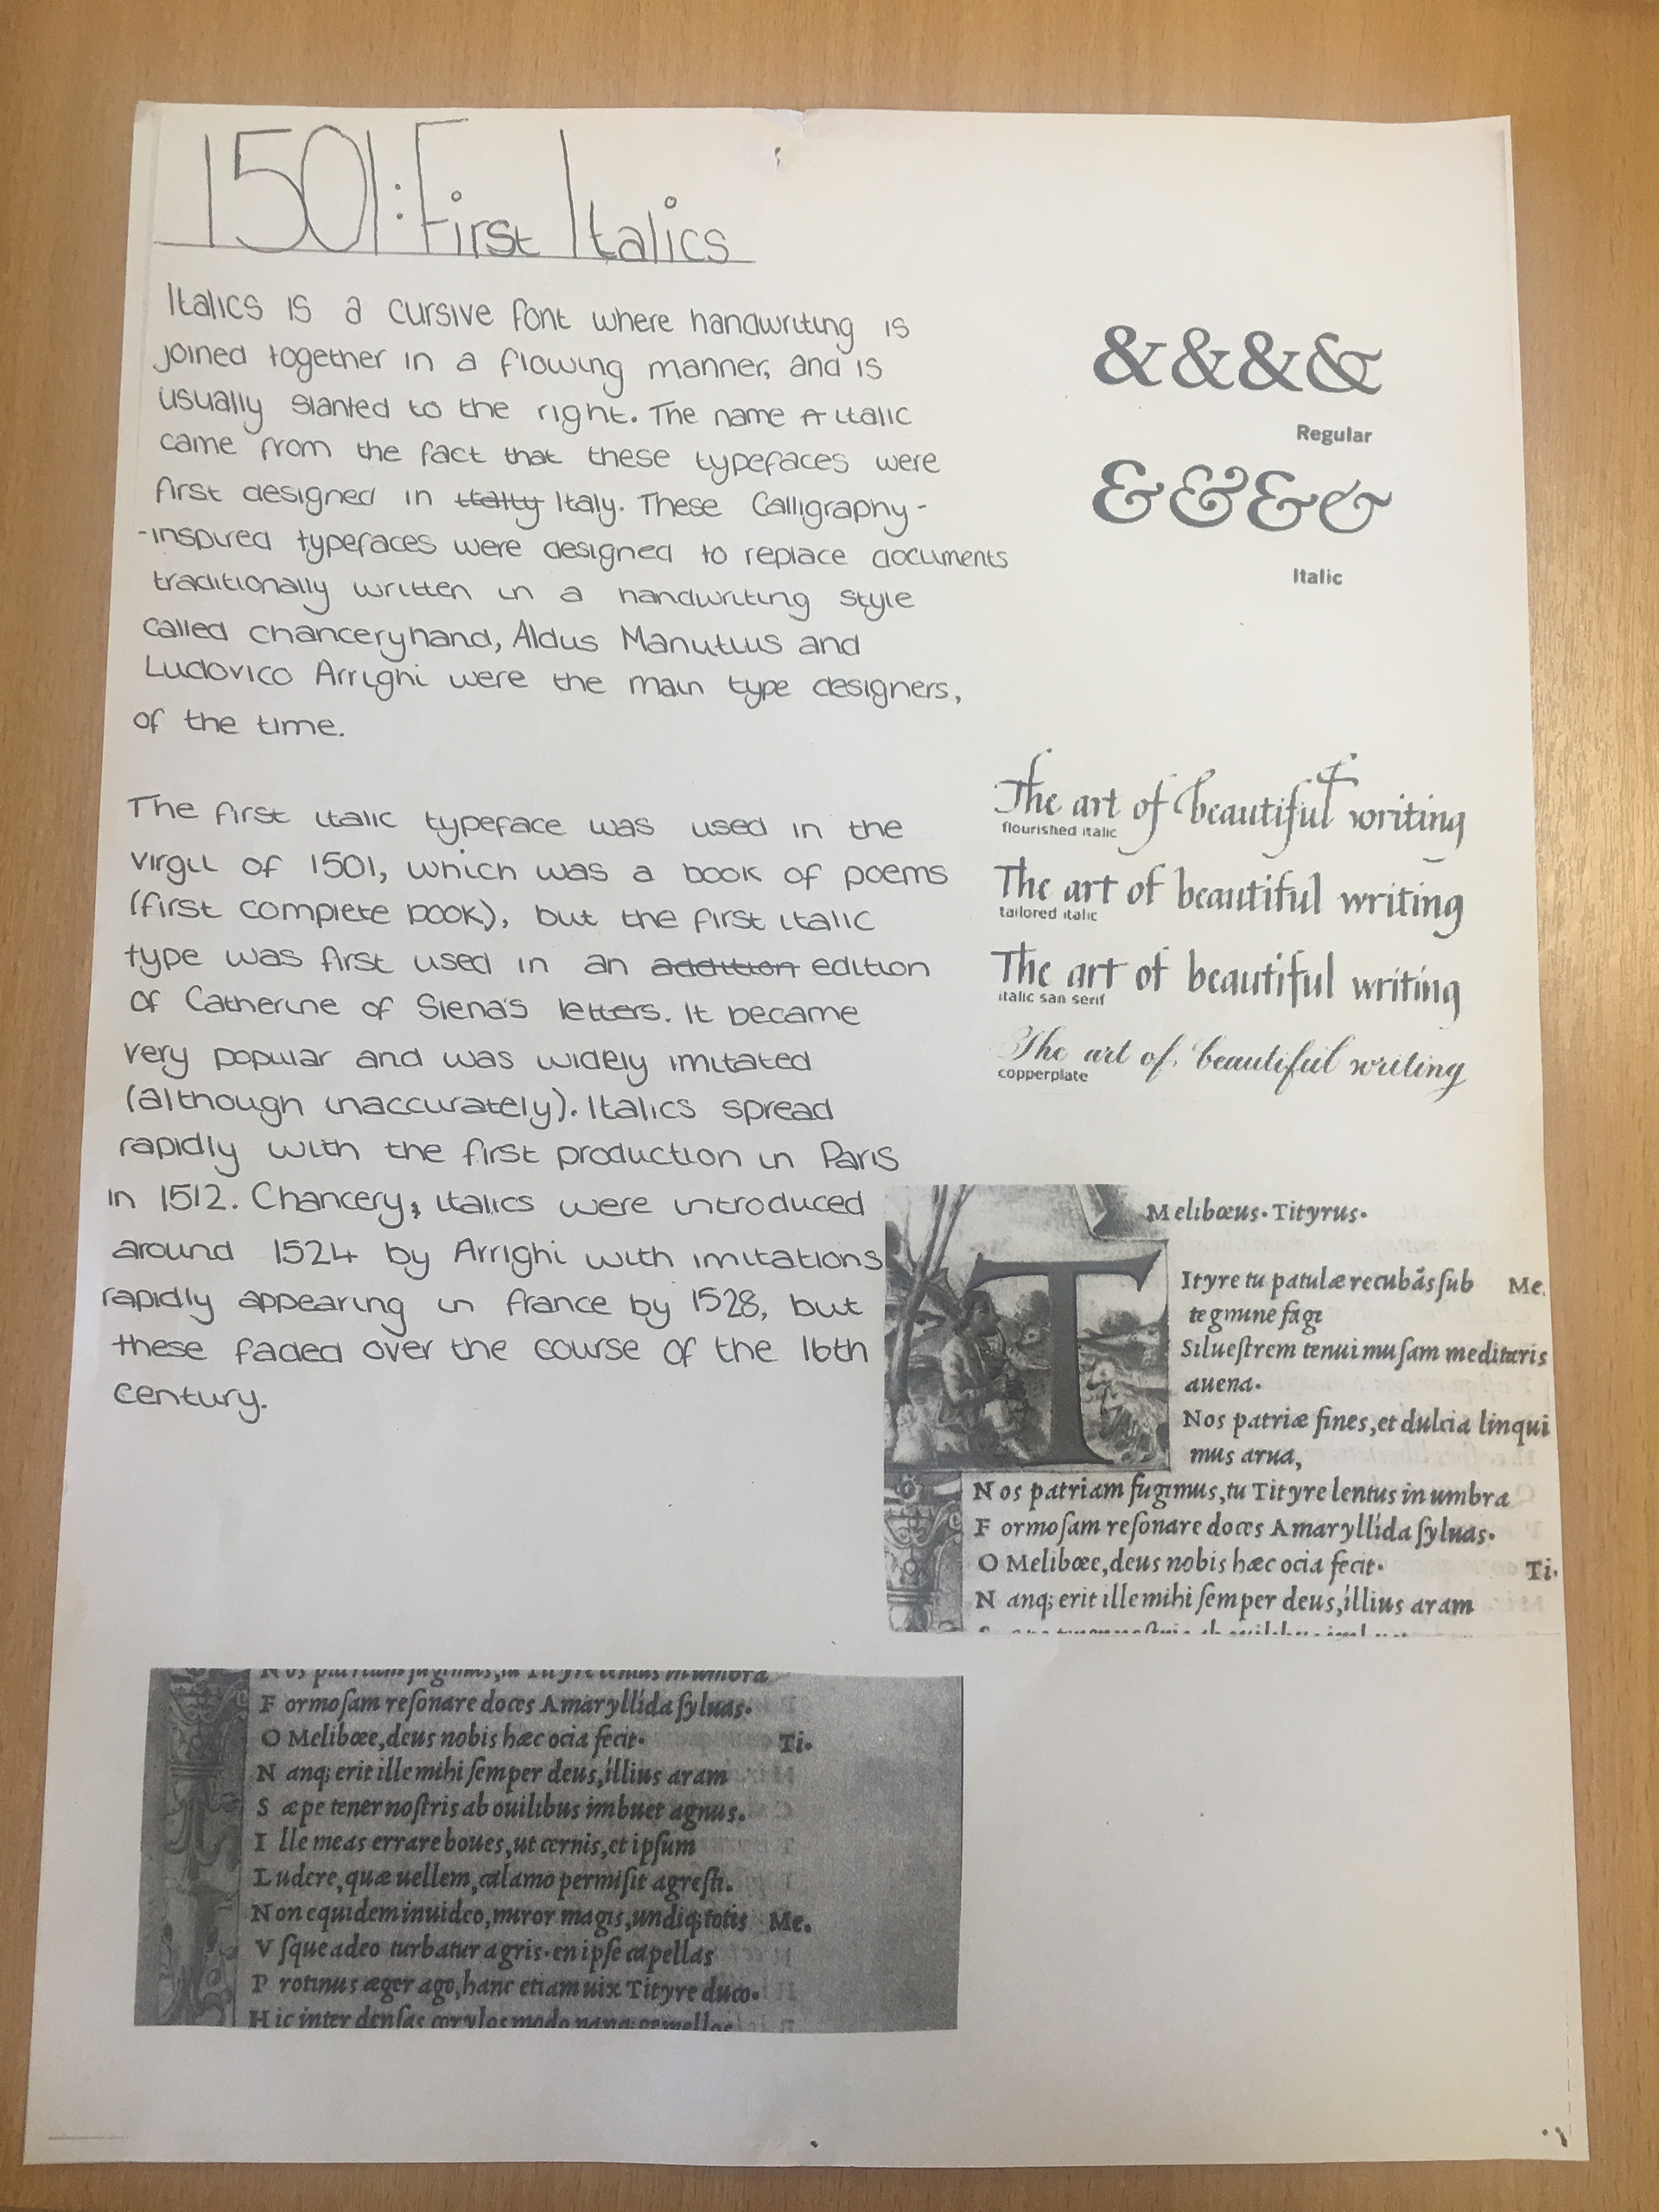 1501: First Italics
Italics is a cursive font where handwriting is
joined together in a flowing manner, and is
usually slanted to the right. The name italic
came from the fact that these typefaces were
first designed in Italy. These Calligraphy-
-inspired typefaces were designed to replace documents
traditionally written in a handwriting style
called chanceryhand, Aldus Manutius and
Ludovico Arrighi were the main type designers,
of the time.
The first italic typeface was used in the
virgil of 1501, which was a book of poems
(first complete book), but the first italic
type was first used in an addition edition
of Catherine of Siena's letters. It became
very popular and was widely imitated
(although inaccurately). Italics spread
rapidly with the first production in Paris
in 1512. Chancery, italics were introduced
around 1524 by Arrighi with imitations
rapidly appearing in france by 1528, but
these faded over the course of the 16th
century.
&&&&
Regular
&&&&
Italic
The art of beautiful writing
flourished italic
The art of beautiful writing
tailored italic
The art of beautiful writing
italic san serif
The art of beautiful writing
copperplate
Melibœus. Tityrus.
T
Ityre tu patulæ recubãs ſub Me.
tegmine fagi
Silueſtrem tenui muſam meditaris
auena.
Nos patriæ fines, et dulcia linqui
mus arua,
Nos patriam fugimus, tu Tityre lentus in umbra
F ormoſam reſonare doces Amaryllida ſyluas.
O Melibœe, deus nobis hæc ocia fecit. Ti.
N anq; erit ille mihi ſemper deus, illius aram
Nos patriam fugimus, tu Tityre lentus in umbra
F ormoſam reſonare doces Amaryllida ſyluas.
O Melibœe, deus nobis hæc ocia fecit. Ti.
N anq; erit ille mihi ſemper deus, illius aram
S æpe tener noſtris ab ouilibus imbuet agnus.
I lle meas errare boues, ut cernis, et ipſum
L udere, quæ uellem, calamo permiſit agreſti.
N on equidem inuideo, miror magis, undiq; totis Me.
V ſque adeo turbatur agris. en ipſe capellas
P rotinus æger ago, hanc etiam uix Tityre duco.
H ic inter denſas corylos modo nanq; gemellos